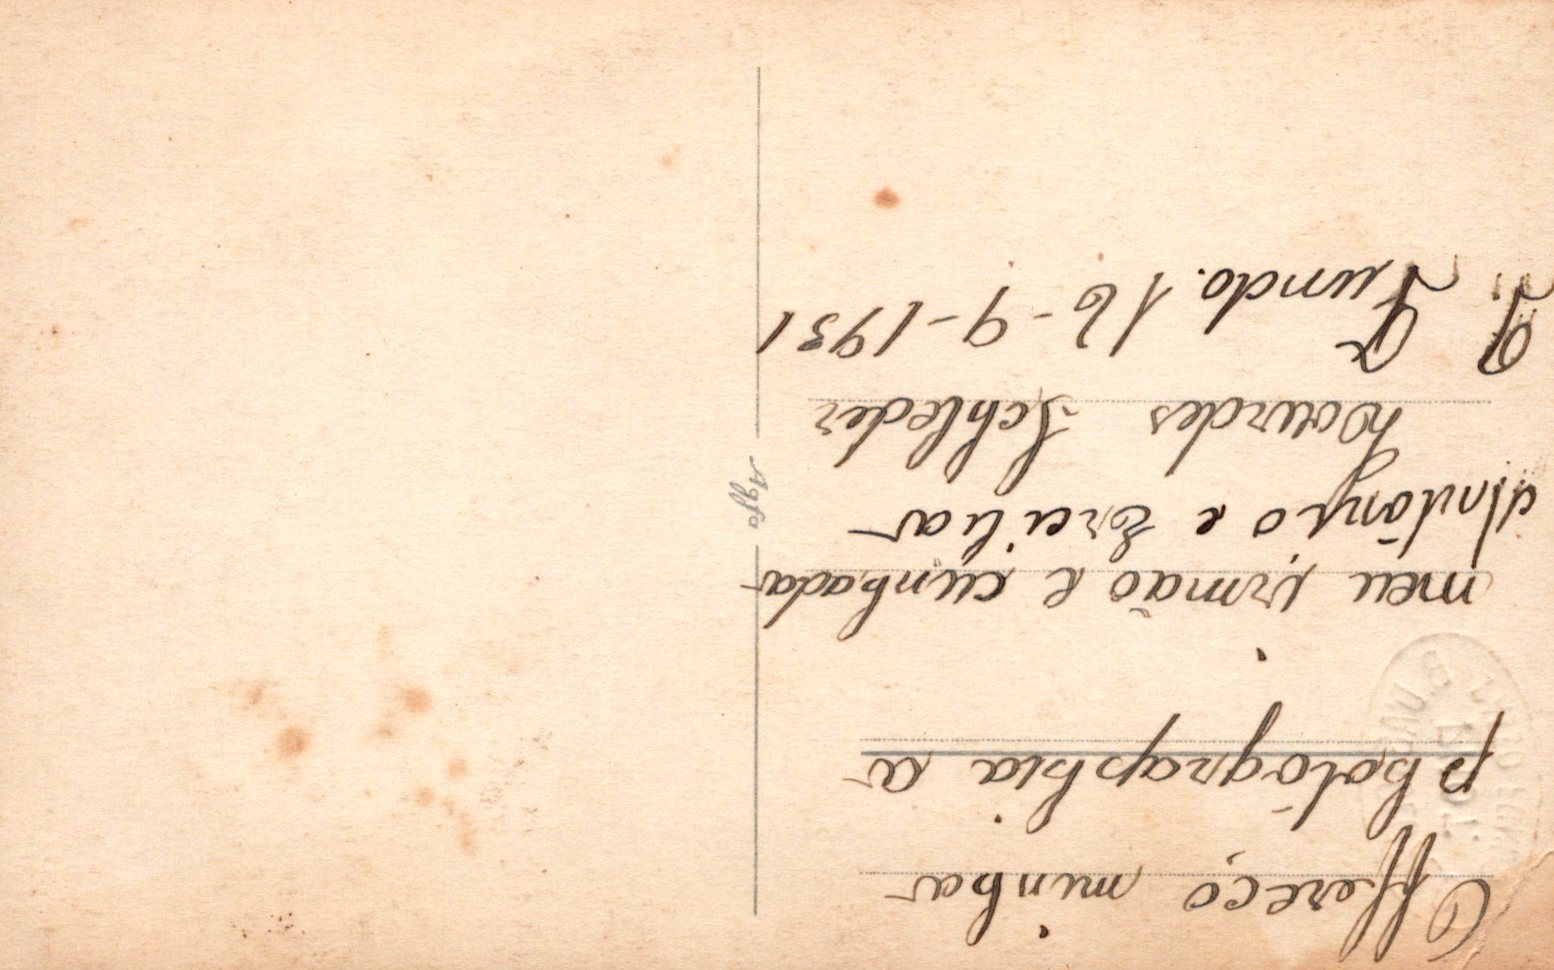 Offereço minha
photógraphia a
meu irmão e cunhada
Antônio e Ercilia
Lourdes Schleder
P. Fundo. 16-9-1931
Agfa